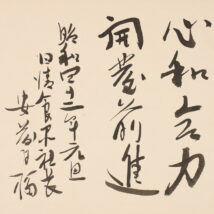 心和合力
開發前進
昭和四十二年元旦
日清食品社長
安藤百福